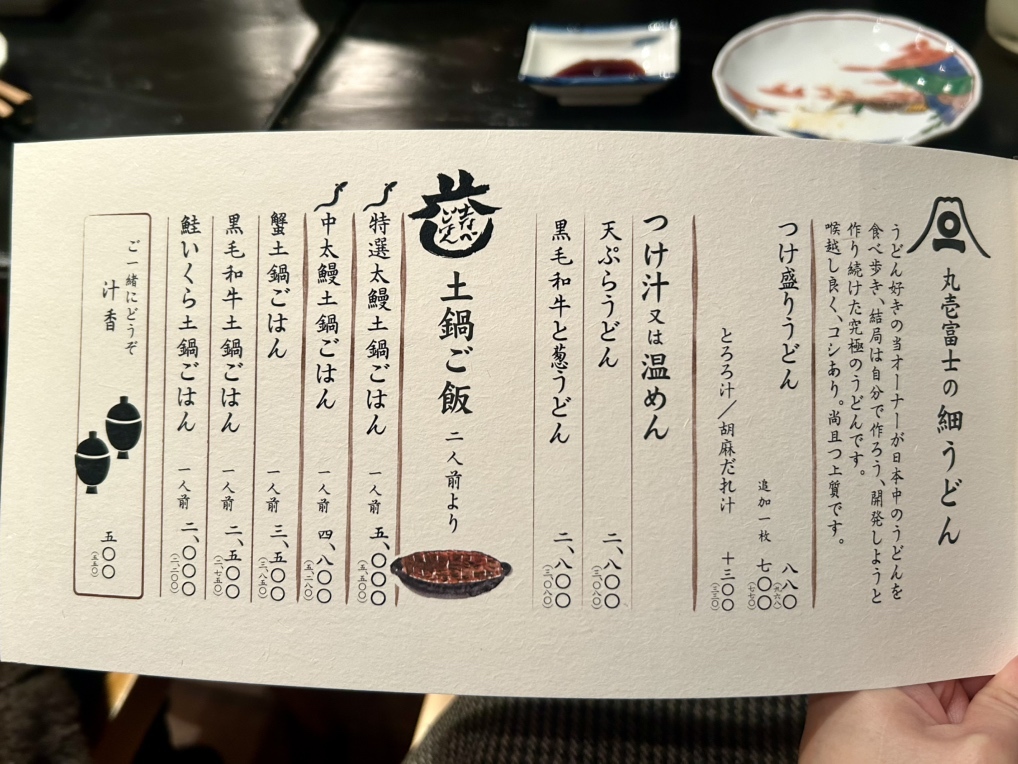 丸壱富士の細うどん
うどん好きの当オーナーが日本中のうどんを
食べ歩き、結局は自分で作ろう、開発しようと
作り続けた究極のうどんです。
喉越し良く、コシあり。尚且つ上質です。
つけ盛りうどん 八八〇
(九六八)
追加一枚 七〇〇
(七七〇)
とろろ汁/胡麻だれ汁 十三〇〇
(三三〇)
つけ汁又は温めん
天ぷらうどん 二、八〇〇
(三、〇八〇)
黒毛和牛と葱うどん 二、八〇〇
(三、〇八〇)
土鍋ご飯 二人前より
特選太鰻土鍋ごはん 一人前 五、〇〇〇
中太鰻土鍋ごはん 一人前 四、八〇〇
(五、二八〇)
蟹土鍋ごはん 一人前 三、五〇〇
(三、八五〇)
黒毛和牛土鍋ごはん 一人前 二、五〇〇
(二、七五〇)
鮭いくら土鍋ごはん 一人前 二、〇〇〇
(二、二〇〇)
ご一緒にどうぞ
汁香 五〇〇
(五五〇)